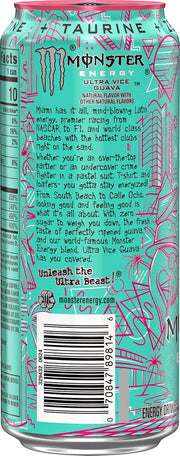 TAURINE +
MONSTER
ENERGY
ULTRA VICE
GUAVA
NATURAL FLAVOR WITH
OTHER NATURAL FLAVORS
Facts
1 can
10
Miami has it all, mind-blowing Latin
energy, premier racing from
NASCAR to F1, and world class
beaches with the hottest clubs
right on the sand.
Whether you're an over-the-top
hipster or an undercover crime
fighter in a pastel suit, T-shirt and
loafers you gotta stay energized
From South Beach to Calle Ocho
looking good and feeling good is
what it's all about? With zero
sugar to weigh you down, the fresh
taste of perfectly ripened guava,
and our world-famous Monster
Energy blend, Ultra Vice Guava
has you covered.
Unleash the
Ultra Beast!®
monsterenergy.com
0 70847 89814 6
ENERGY DRIN